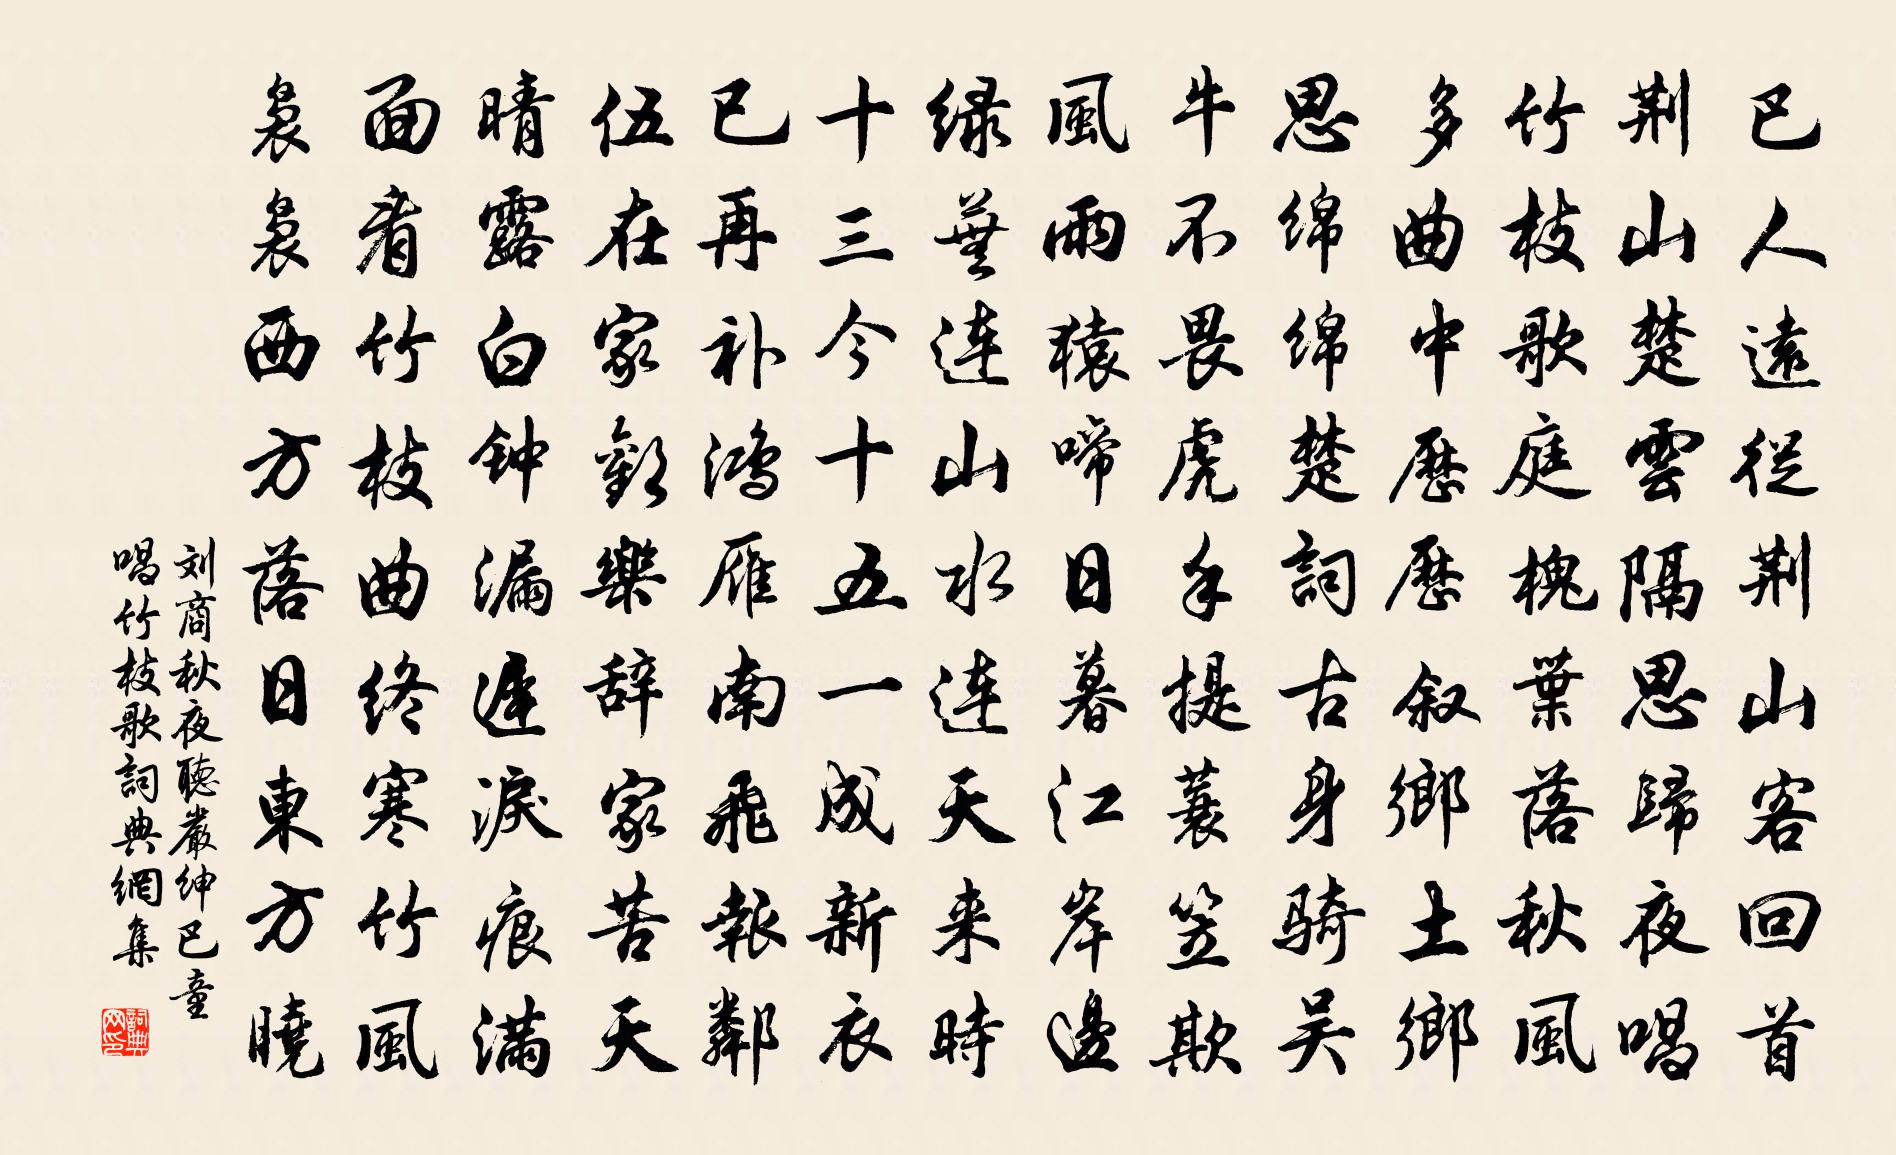 巴人遠從荆山客回首
荆山楚雲隔思歸夜唱
竹枝歌庭槐葉落秋風
多曲中歷歷叙鄉土鄉
思绵绵楚詞古身骑吴
牛不畏虎手提蓑笠欺
風雨猿啼日暮江岸邊
绿蕪连山水连天来時
十三今十五一成新衣
已再补鸿雁南飛報鄰
伍在家歡樂辞家苦天
晴露白钟漏遲淚痕满
面看竹枝曲终寒竹風
袅袅西方落日東方曉
刘商秋夜聽嚴绅巴童
唱竹枝歌詞典網集
詞典网印